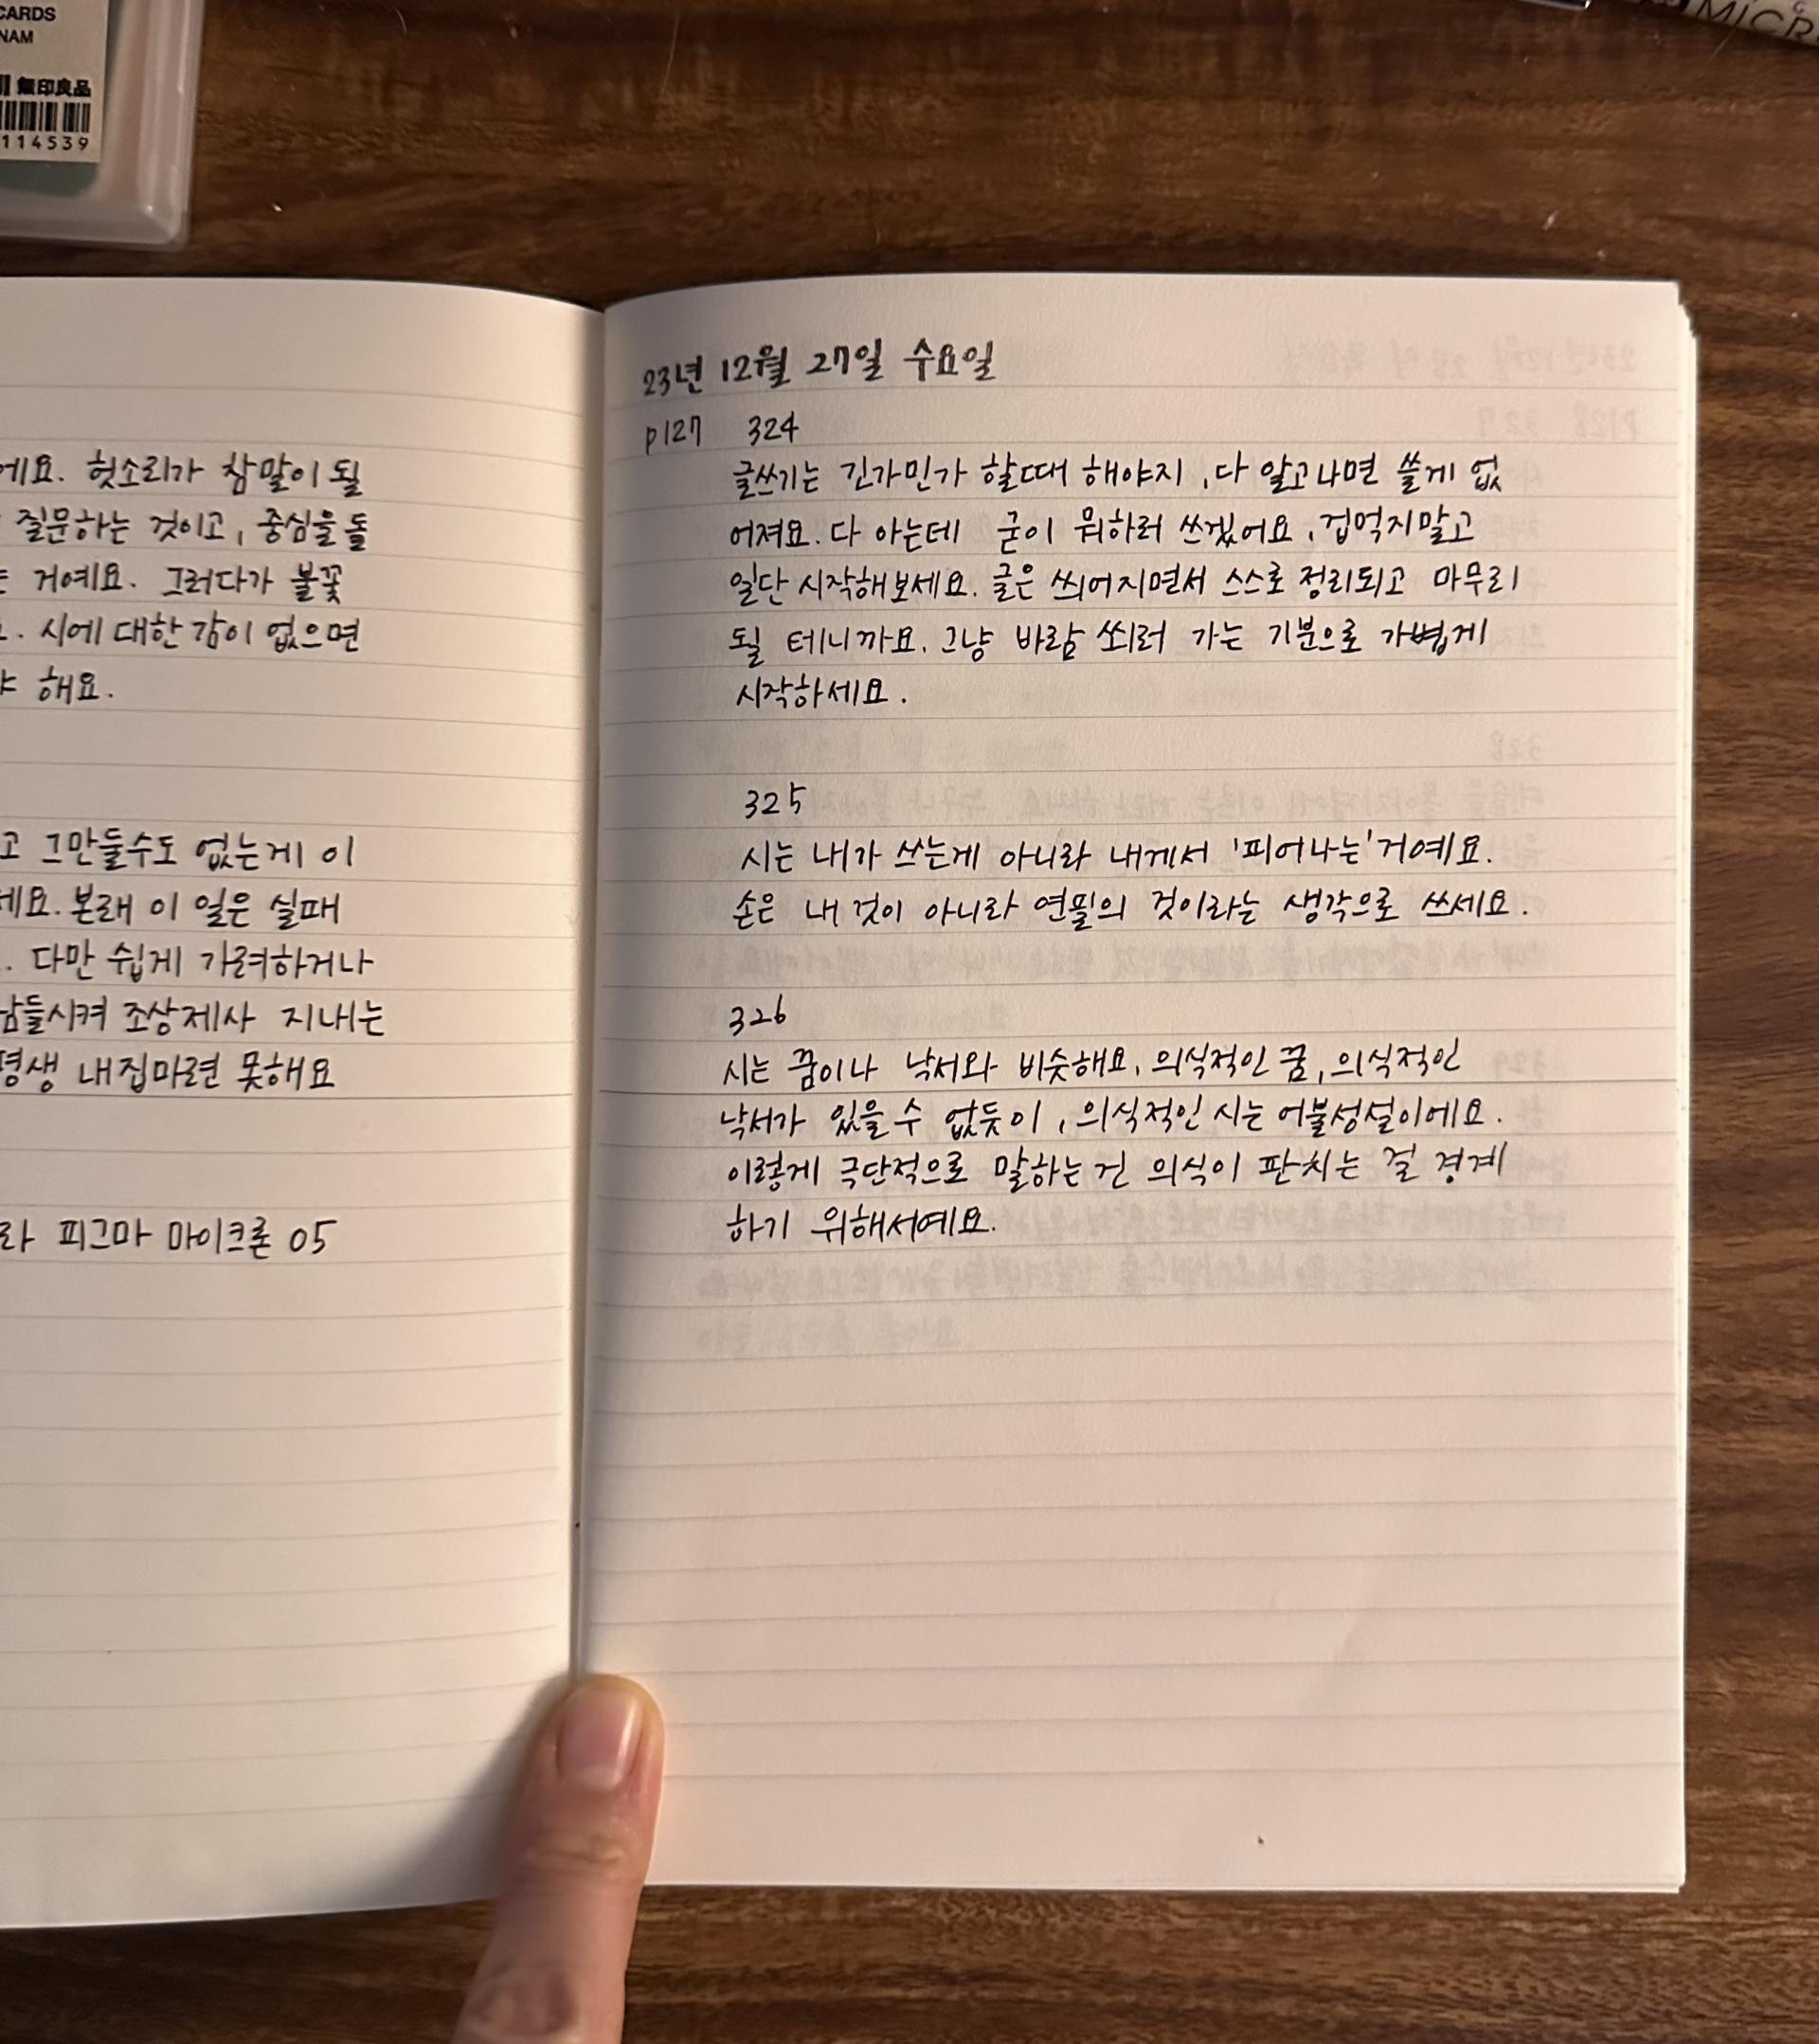 CARDS
NAM
無印良品
114539
MICR
에요. 헛소리가 참말이 될
질문하는 것이고, 중심을 돌
거예요. 그러다가 불꽃
. 시에 대한 감이 없으면
야 해요.
고 그만둘수도 없는게 이
세요. 본래 이 일은 실패
. 다만 쉽게 가려하거나
남들시켜 조상제사 지내는
평생 내집마련 못해요
라 피그마 마이크론 05
23년 12월 27일 수요일
p127 324
글쓰기는 긴가민가 할때 해야지, 다 알고나면 쓸게 없
어져요. 다 아는데 굳이 뭐하러 쓰겠어요, 겁먹지말고
일단 시작해보세요. 글은 씌어지면서 스스로 정리되고 마무리
될 테니까요. 그냥 바람 쐬러 가는 기분으로 가볍게
시작하세요.
325
시는 내가 쓰는게 아니라 내게서 '피어나는' 거예요.
손은 내 것이 아니라 연필의 것이라는 생각으로 쓰세요.
326
시는 꿈이나 낙서와 비슷해요, 의식적인 꿈, 의식적인
낙서가 있을 수 없듯이, 의식적인 시는 어불성설이에요.
이렇게 극단적으로 말하는 건 의식이 판치는 걸 경계
하기 위해서예요.